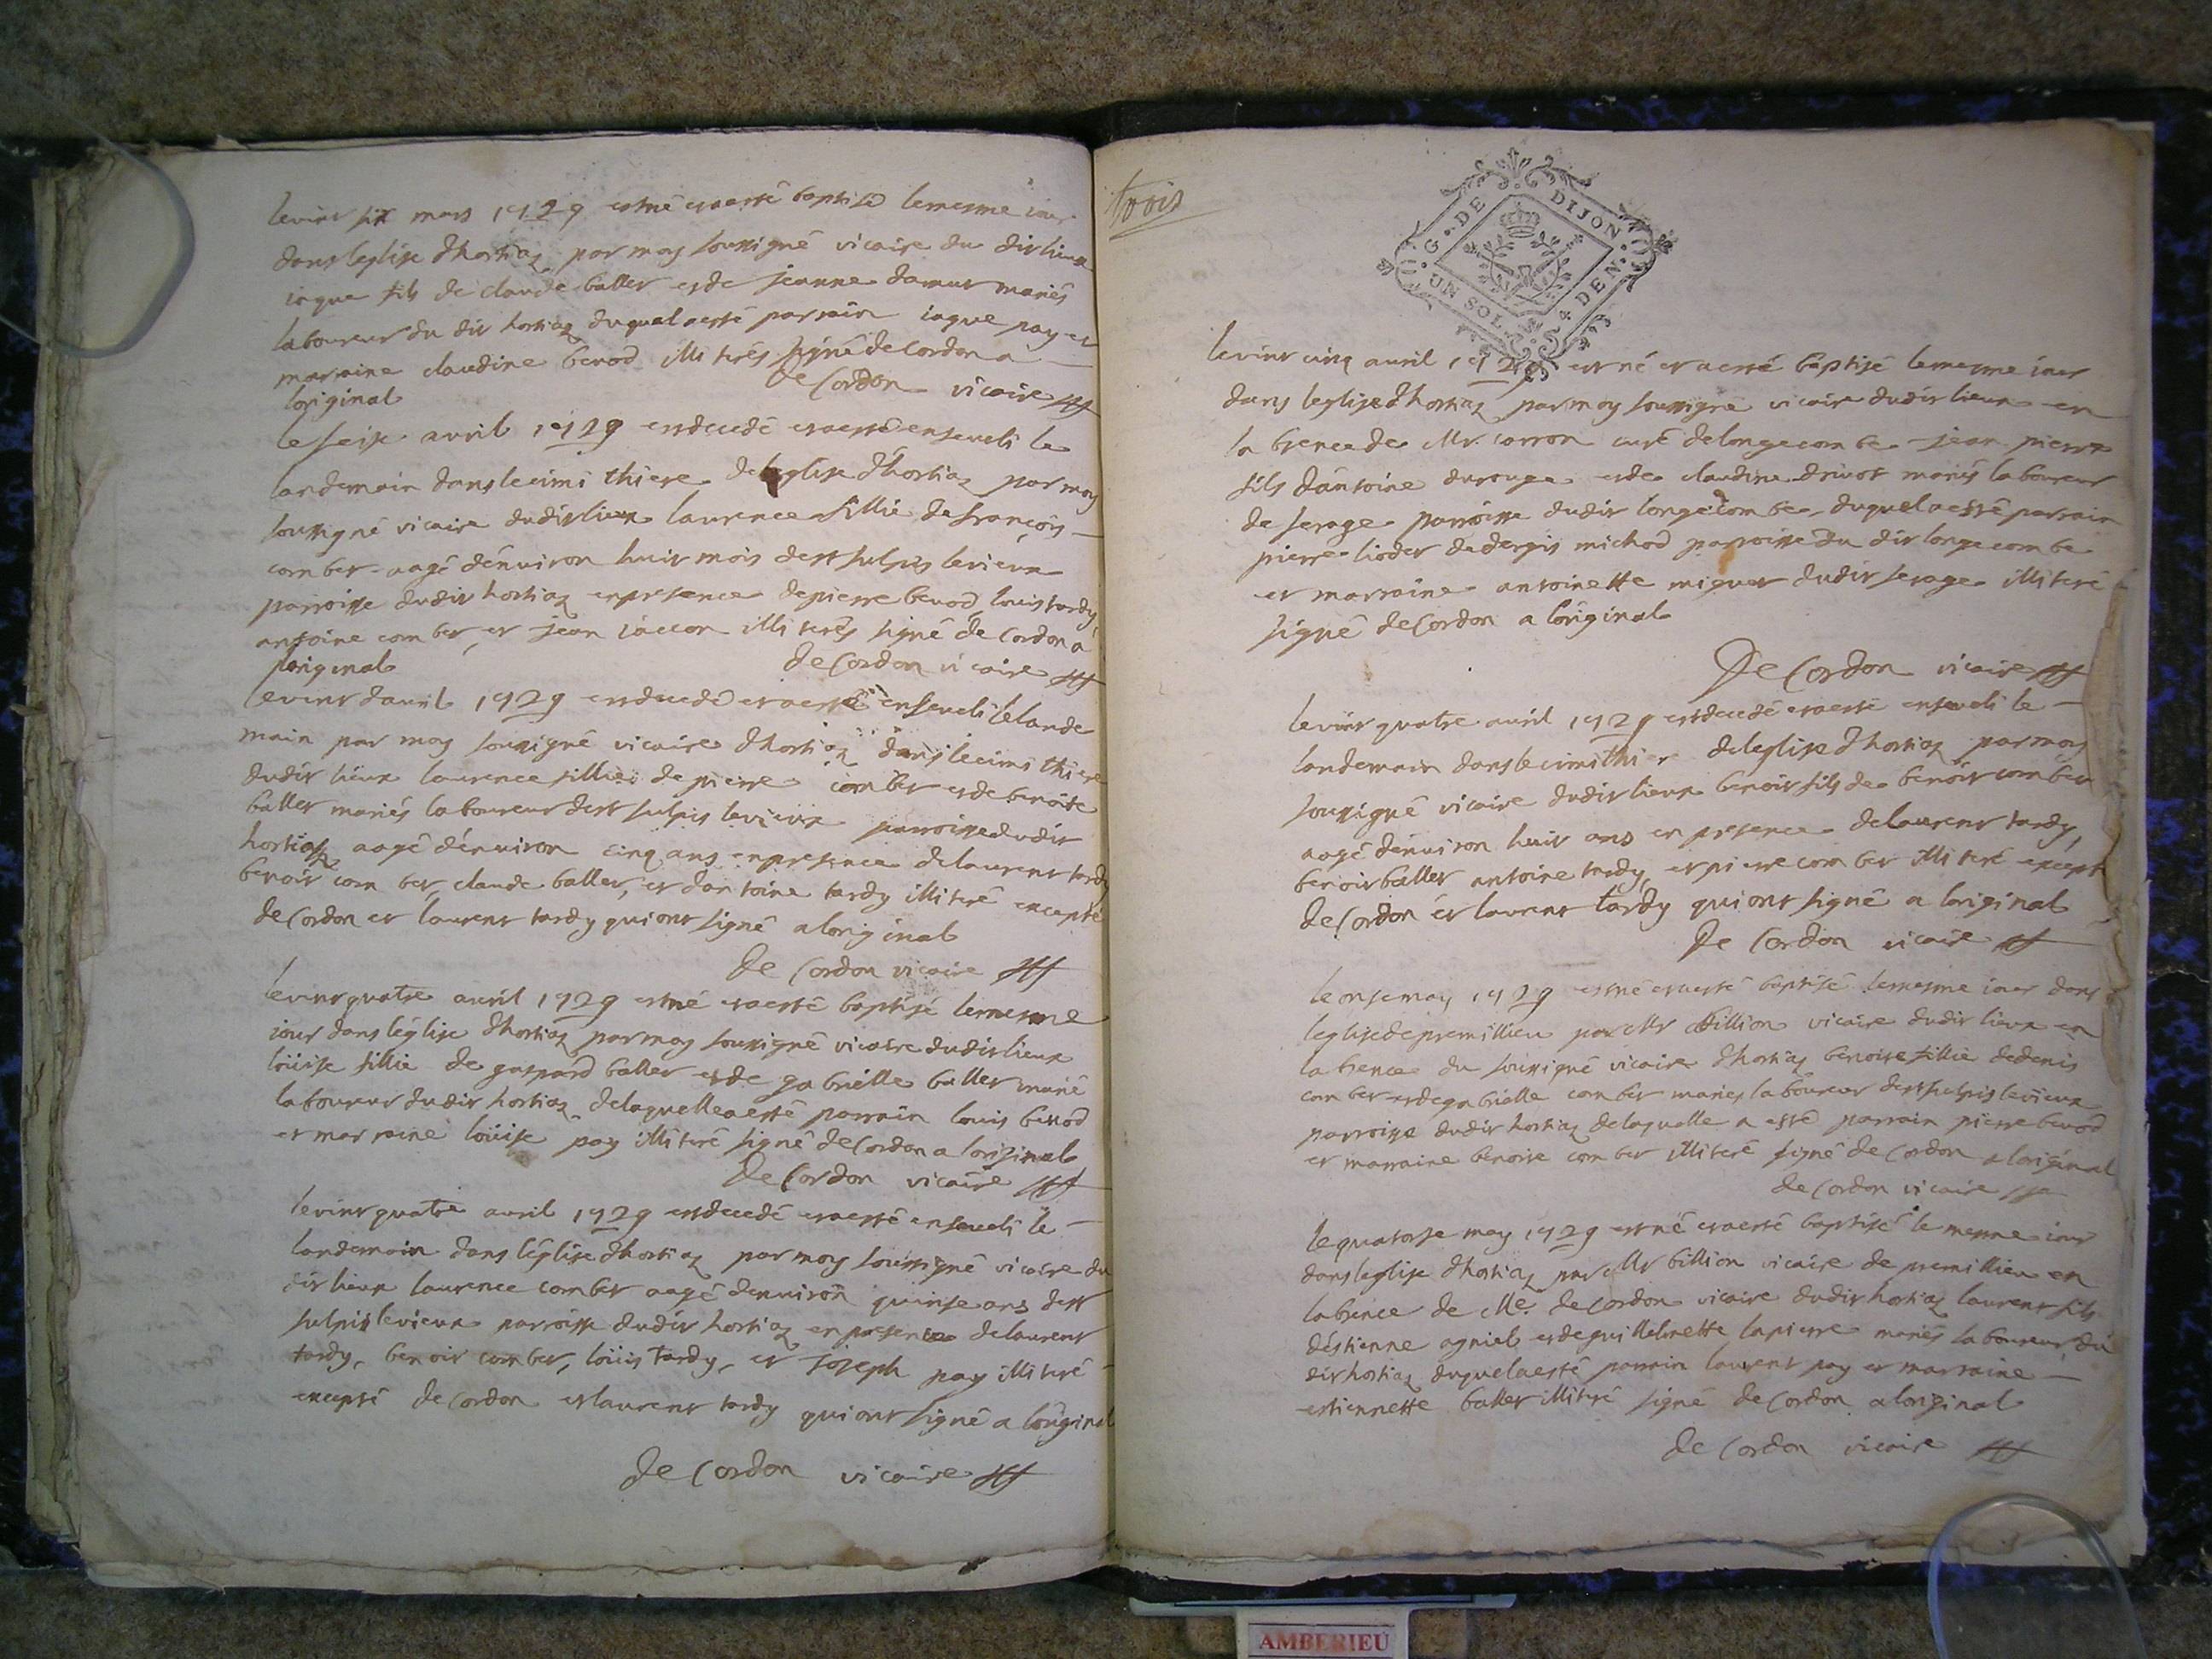 le vint six mars 1729 est né et a esté baptisé le mesme iour
dans leglise d'hostiaz par moy soussigné vicaire du dit lieux
iaque fils de claude ballet et de jeanne damur mariés
laboureur du dit hostiaz duquel a esté parrain iaque pay et
marraine claudine benod illiterés signé de Cordon a
loriginal De Cordon vicaire
le seise avril 1729 est decedé et a esté enseveli le
landemain dans le cimithiere de leglise d'hostiaz par moy
soussigné vicaire dudit lieux laurence fillie de françois
combet aagé dénuiron huit mois de st sulpis le vieux
parroisse dudit hostiaz en presence de pierre benod, louis tardy,
antoine combet, et jean iaccon illiterés signé de Cordon a
loriginal De Cordon vicaire
le vint d'auril 1729 est decedé et a esté enseveli le lande
main par moy soussigné vicaire d'hostiaz dans le cimithiere
dudit lieux laurence fillie de pierre combet et de benoite
ballet mariés laboureur de st sulpis le vieux parroisse dudit
hostiaz aagé dénuiron cinq ans en presence de laurent tardy
benoit combet, claude ballet, et d'antoine tardy illiteré excepté
de Cordon et laurent tardy qui ont signé a loriginal
De Cordon vicaire
le vint quatre auril 1729 est né et a esté baptisé le mesme
iour dans léglise d'hostiaz par moy soussigné vicaire dudit lieux
loüise fillie de gaspard ballet et de gabriélle ballet marié
laboureur dudit hostiaz de laquelle a esté parrain louis benod
et marraine loüise pay illiteré signé de Cordon a loriginal
De Cordon vicaire
le vint quatre auril 1729 est decedé et a esté enseveli le
landemain dans léglise d'hostiaz par moy soussigné vicaire du
dit lieux laurence combet aagé denuiron quinse ans de st
sulpis le vieux parroisse dudit hostiaz en presence de laurent
tardy, benoit combet, loüis tardy, et joseph pay illiteré
excepté de Cordon et laurent tardy qui ont signé a loriginal
De Cordon vicaire
trois
G. DE DIJON
UN SOL. 4 DEN.
le vint cinq auril 1729 est né et a esté baptisé le mesme iour
dans leglise d'hostiaz par moy soussigné vicaire dudit lieux en
labsence de Mr. carron curé de longecombe jean pierre
fils d'antoine durouge et de claudine drivot mariés laboureur
de serage parroisse dudit longecombe, duquel a esté parrain
pierre liodet de dergis michod parroisse du dit longecombe
et marraine antoinette miguet dudit serage illiteré
signé de Cordon a loriginal
De Cordon vicaire
le vint quatre auril 1729 est decedé et a esté enseveli le
landemain dans le cimithier de leglise d'hostiaz par moy
soussigné vicaire dudit lieux benoit fils de benoit combet
aagé dénuiron huit ans en presence de laurent tardy,
benoit ballet antoine tardy, et pierre combet illiteré except
de Cordon et laurent tardy qui ont signé a loriginal
De Cordon vicaire
le onse may 1729 est né et a esté baptisé le mesme iour dans
leglise de premillieu par Mr Billion vicaire dudit lieux en
labsence du soussigné vicaire d'hostiaz benoite fillie de denis
combet et de gabriélle combet mariés laboureur de st sulpis le vieux
parroisse dudit hostiaz de laquelle a esté parrain pierre benod
et marraine benoite combet illiteré signé de Cordon a loriginal
de Cordon vicaire
le quatorse may 1729 est né et a esté baptisé le mesme iour
dans leglise d'hostiaz par Mr billion vicaire de premillieu en
labsence de Me. de Cordon vicaire dudit hostiaz laurent fils
déstienne agniel et de guillelmette lapierre mariés laboureur du
dit hostiaz duquel a esté parrain laurent pay et marraine
estiennette ballet illiteré signé de Cordon a loriginal
de Cordon vicaire
AMBERIEU